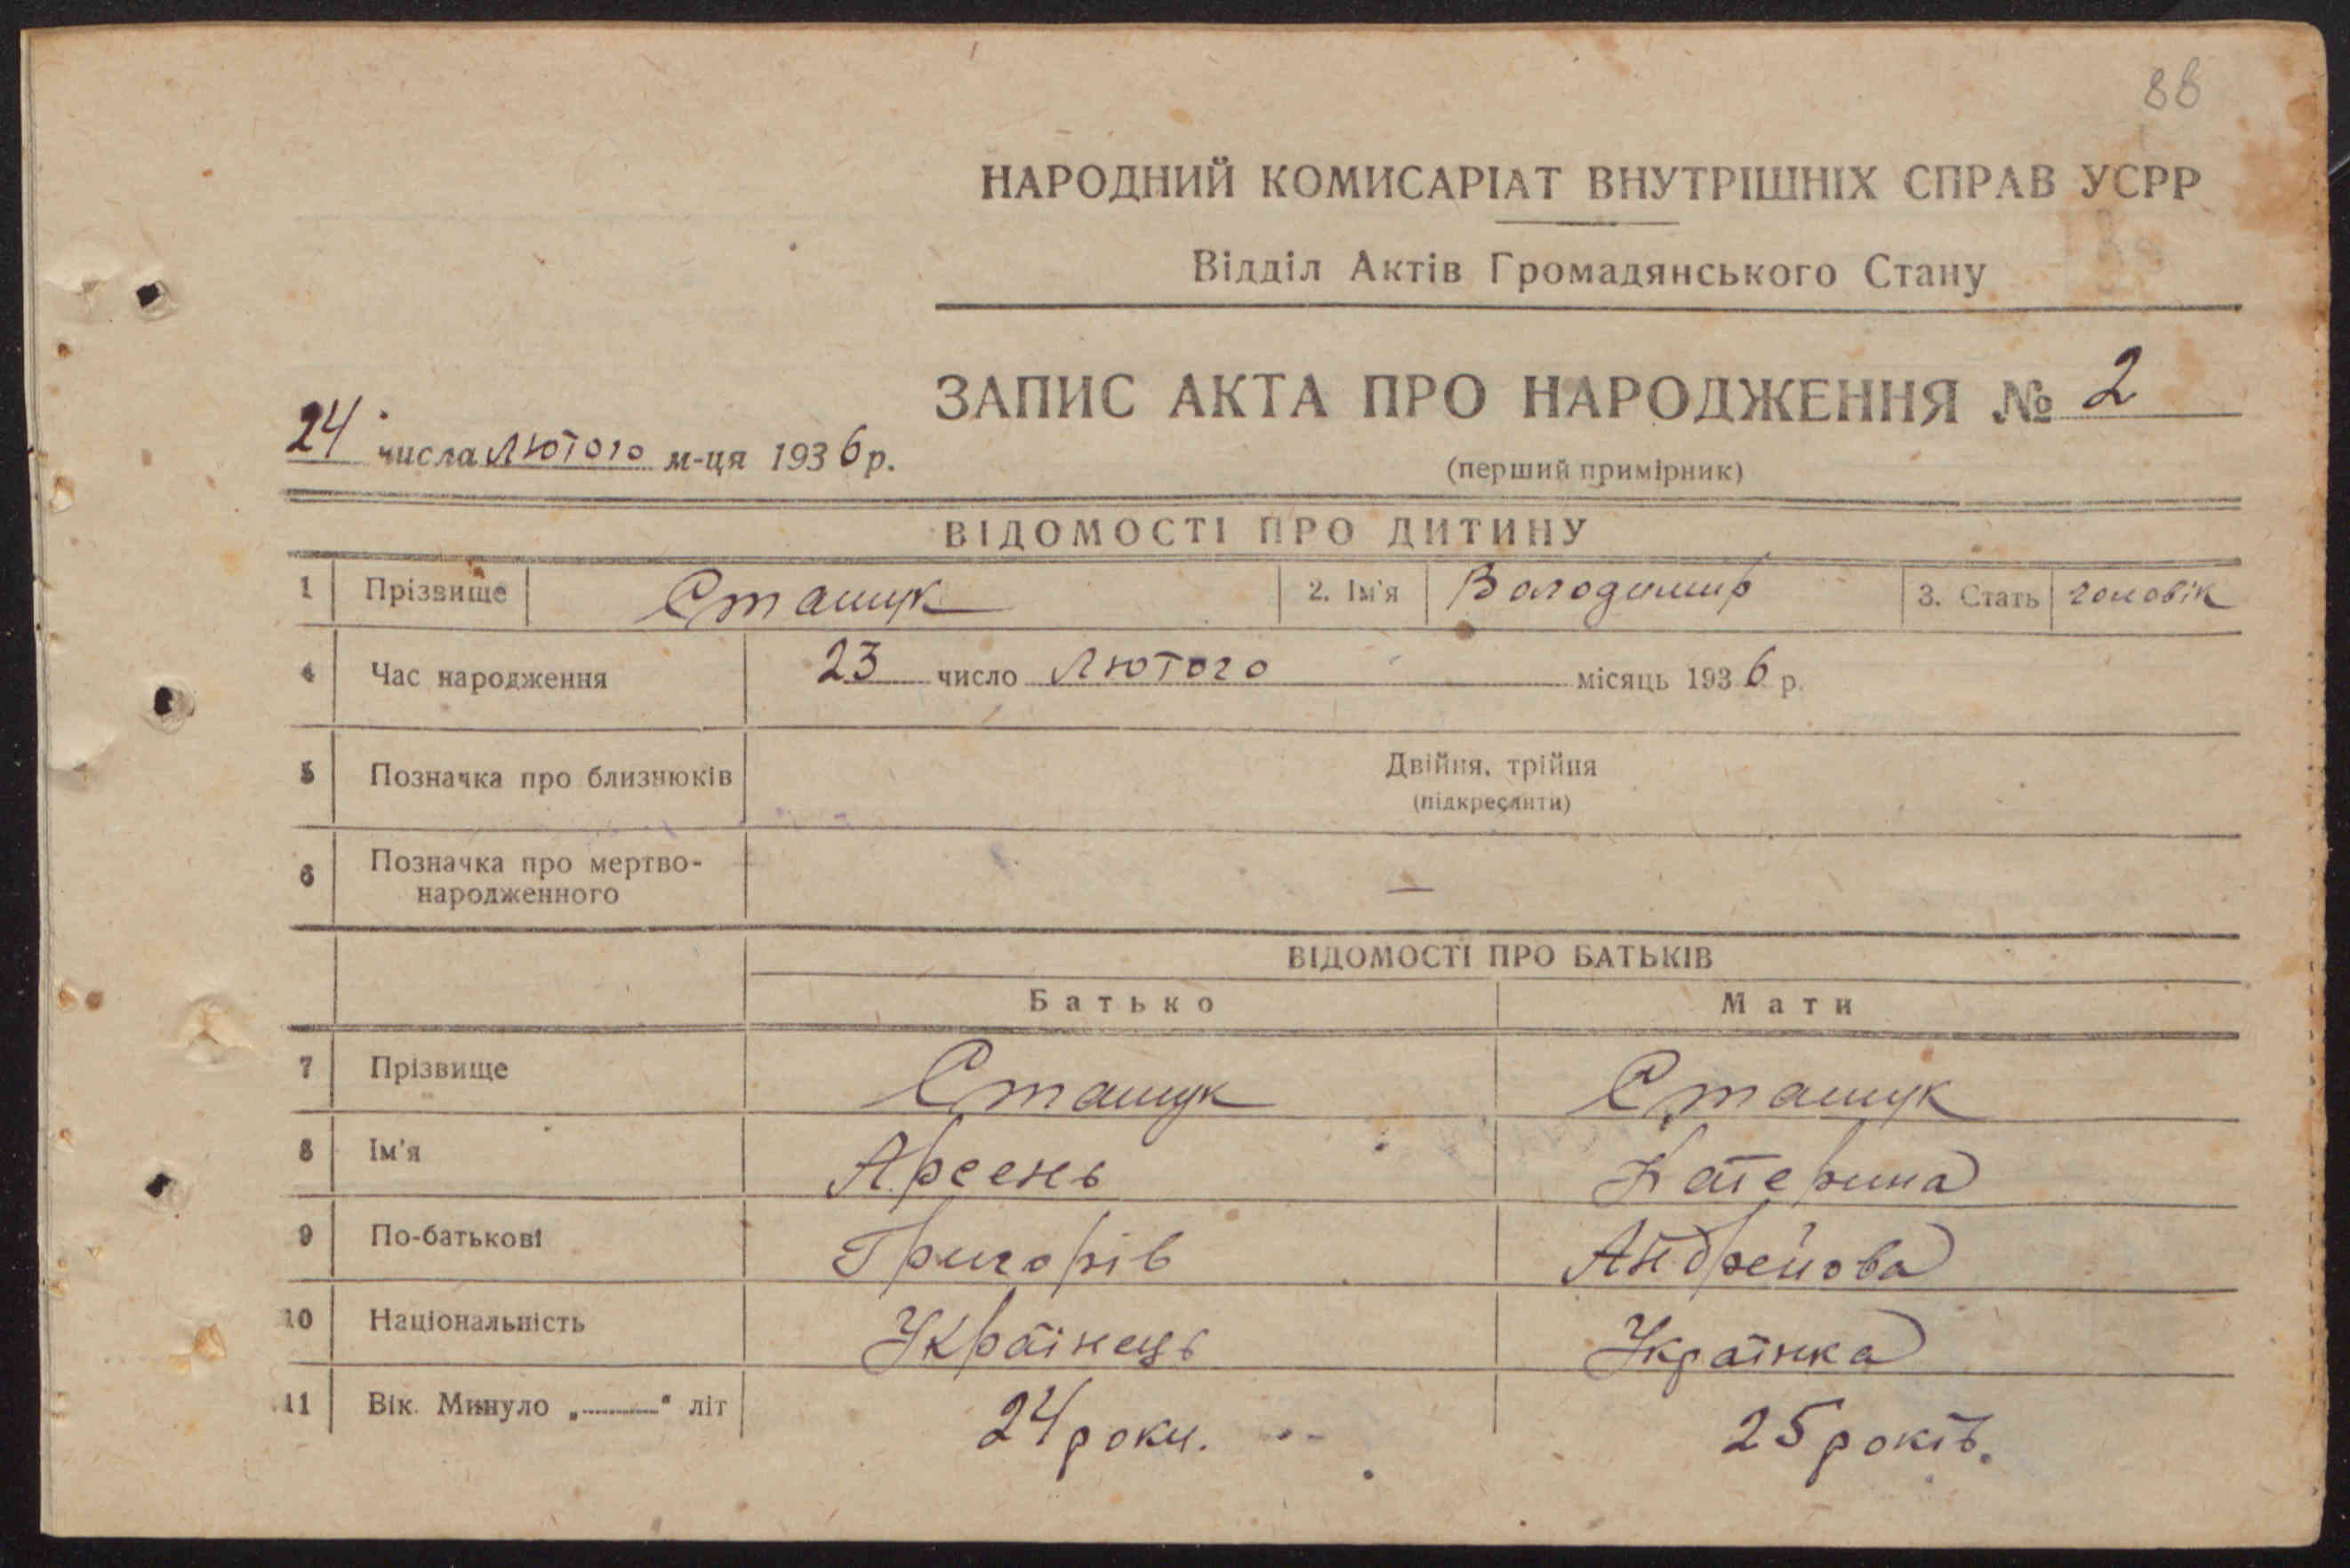 88
НАРОДНИЙ КОМИСАРІАТ ВНУТРІШНІХ СПРАВ УСРР
Відділ Актів Громадянського Стану
ЗАПИС АКТА ПРО НАРОДЖЕННЯ № 2
24 числа Лютого м-ця 1936 р.
(перший примірник)
ВІДОМОСТІ ПРО ДИТИНУ
1 Прізвище Сташук 2. Ім'я Володимир 3. Стать чоловік
4 Час народження 23 число Лютого місяць 1936 р.
5 Позначка про близнюків Двійня, трійня
(підкреслити)
6 Позначка про мертво-
народженного —
ВІДОМОСТІ ПРО БАТЬКІВ
Батько Мати
7 Прізвище Сташук Сташук
8 Ім'я Арсень Катерина
9 По-батькові Григорів Андрейова
10 Національність Українець Українка
11 Вік. Минуло „-------" літ 24 роки. 25 років.